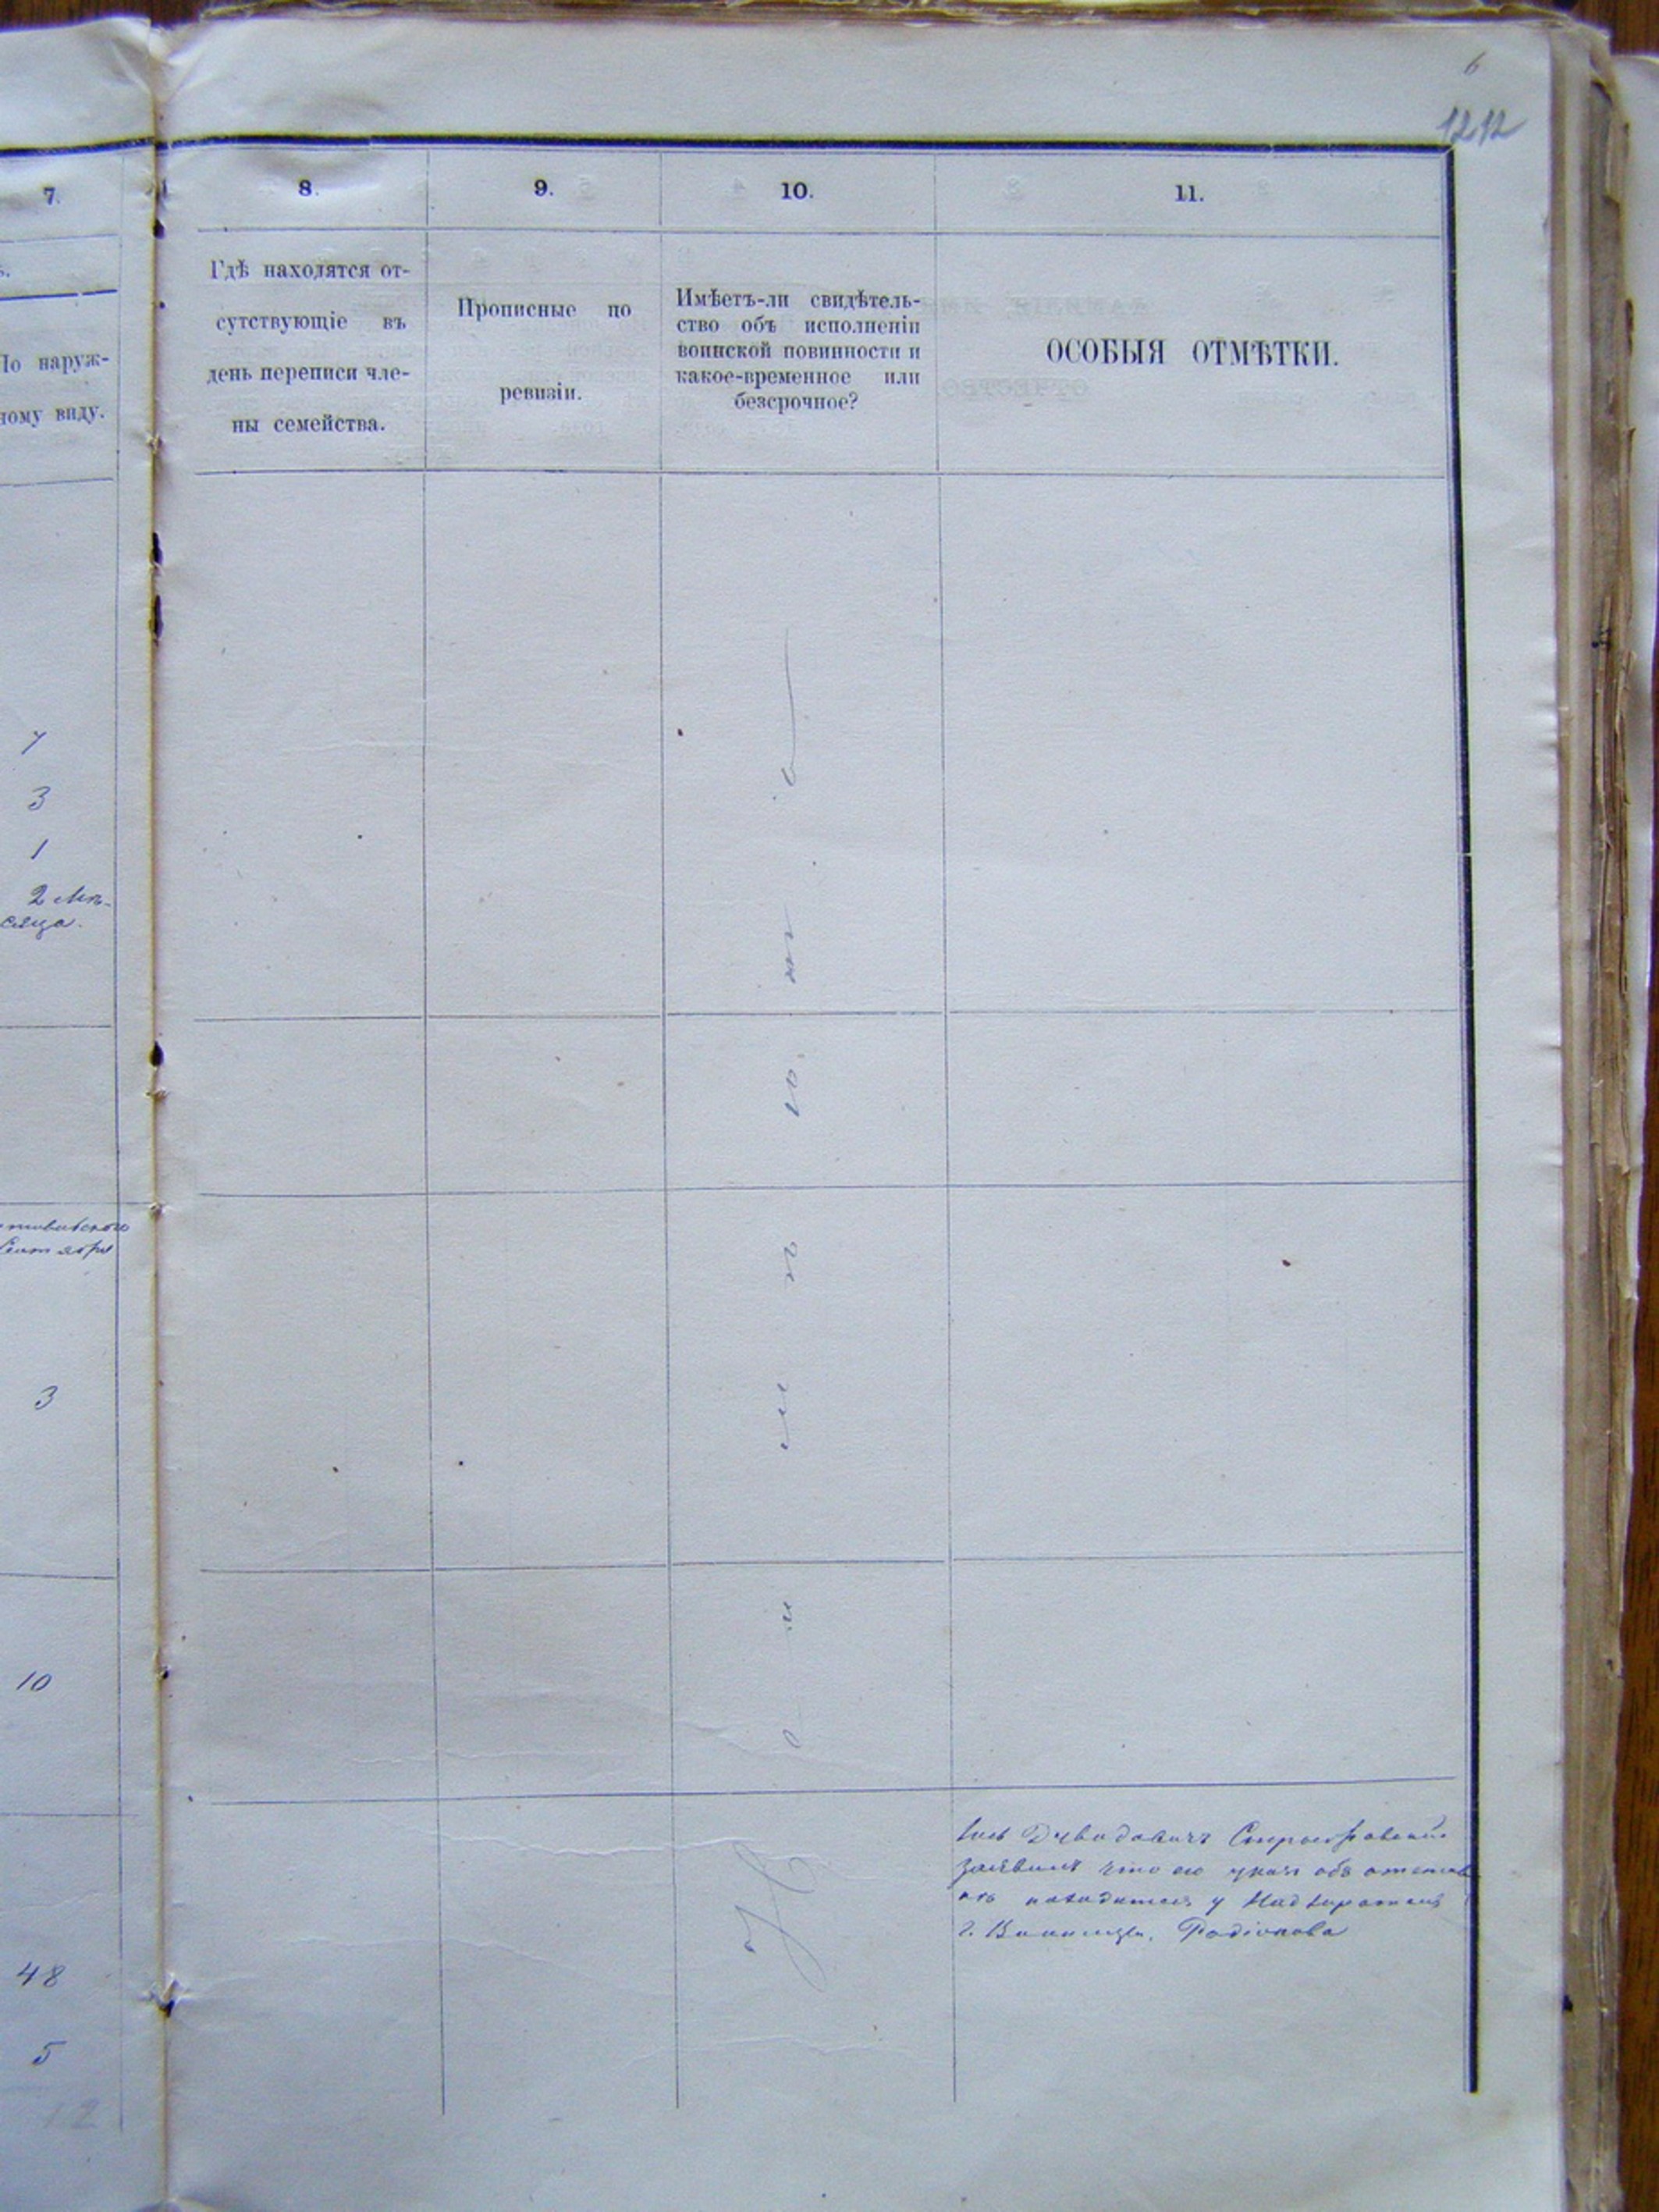 6
1212
7.
8.
9.
10.
11.
По наруж-
ному виду.
Гдѣ находятся от-
сутствующіе въ
день переписи чле-
ны семейства.
Прописные по
ревизіи.
Имѣетъ-ли свидѣтель-
ство объ исполненіи
воинской повинности и
какое-временное или
безсрочное?
ОСОБЫЯ ОТМѢТКИ.
7
3
1
2 Мѣ-
сяца.
3
10
48
5
12
Давидовичъ
заявилъ что его указ объ отстав
кѣ находится у
г. Винницы, Родіонова